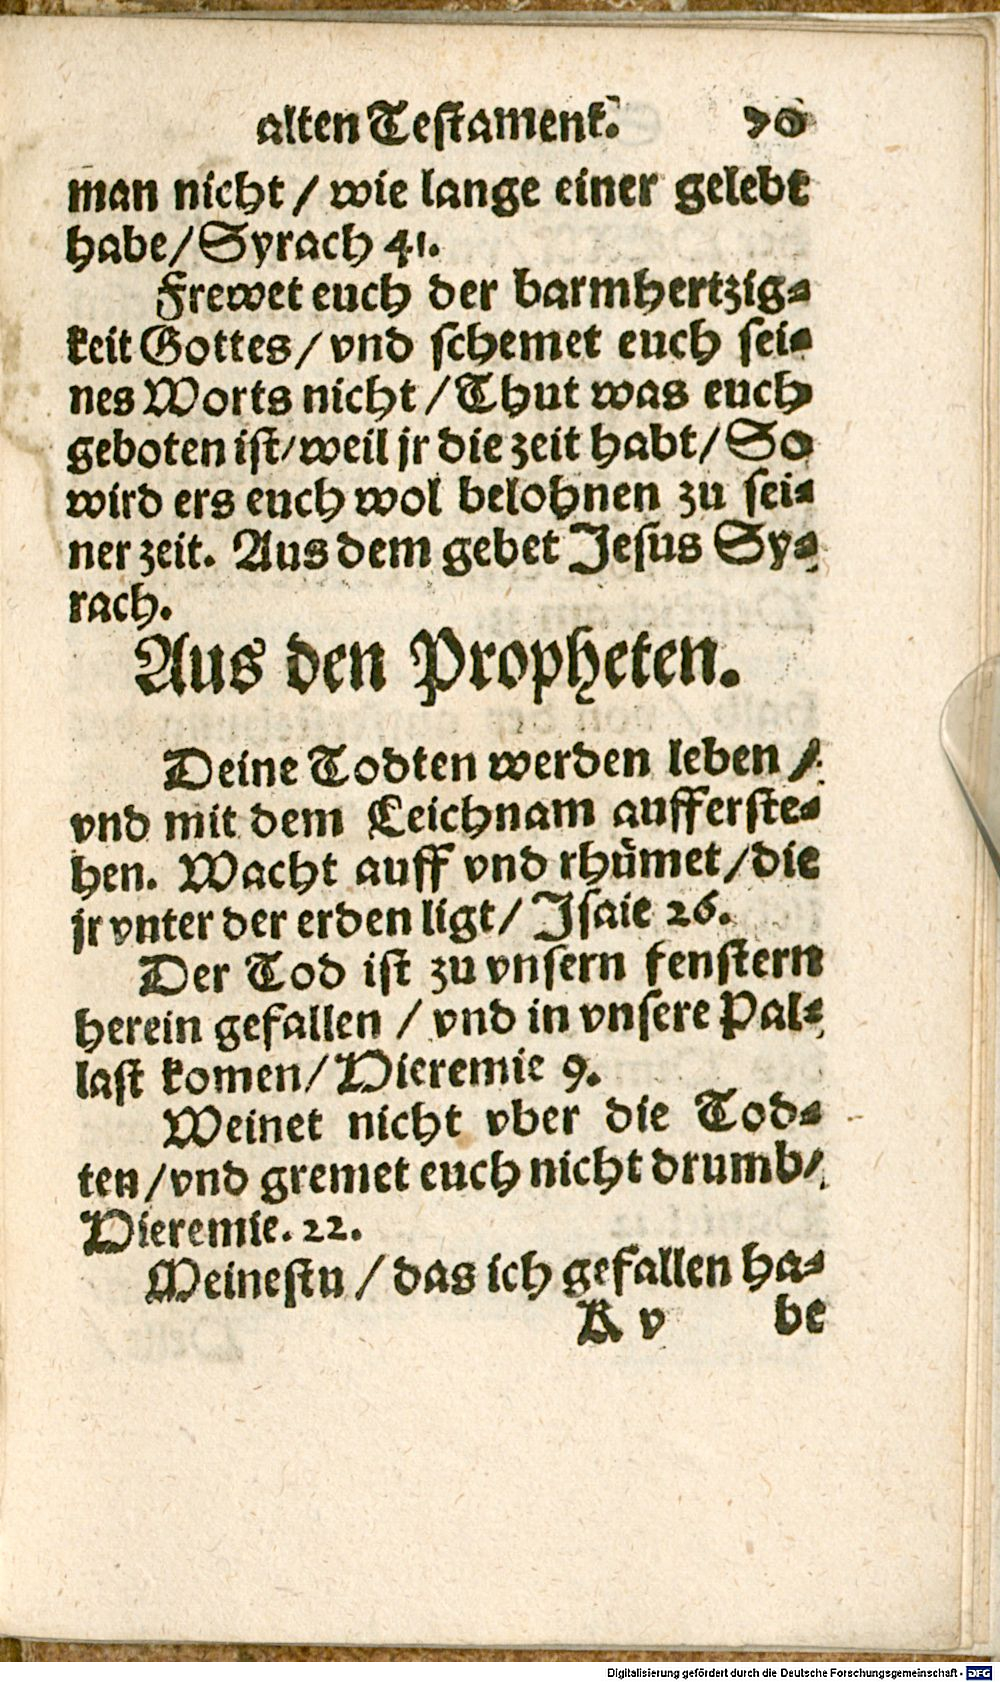 alten Testament. 70
man nicht / wie lange einer gelebt
habe / Syrach 41.
Frewet euch der barmhertzig⸗
keit Gottes / vnd schemet euch sei⸗
nes Worts nicht / Thut was euch
geboten ist / weil jr die zeit habt / So
wird ers euch wol belohnen zu sei⸗
ner zeit. Aus dem gebet Jesus Sy⸗
rach.
Aus den Propheten.
Deine Todten werden leben /
vnd mit dem Leichnam aufferste⸗
hen. Wacht auff vnd rhümet / die
jr vnter der erden ligt / Jsaie 26.
Der Tod ist zu vnsern fenstern
herein gefallen / vnd in vnsere Pal⸗
last komen / Hieremie 9.
Weinet nicht vber die Tod⸗
ten / vnd gremet euch nicht drumb /
Hieremie. 22.
Meinestu / das ich gefallen ha⸗
K v be
Digitalisierung gefördert durch die Deutsche Forschungsgemeinschaft - DFG